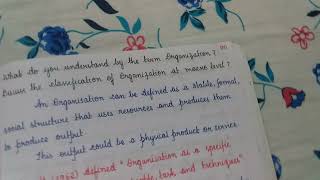 What do you understand by the term Organization?
Discuss the classification of Organization at macro level?
An Organisation can be defined as a stable, formal,
social structure that uses resources and produces them
to produce output.
This output could be a physical product or service
(1962) defined "Organisation as a specific
task, and techniques"